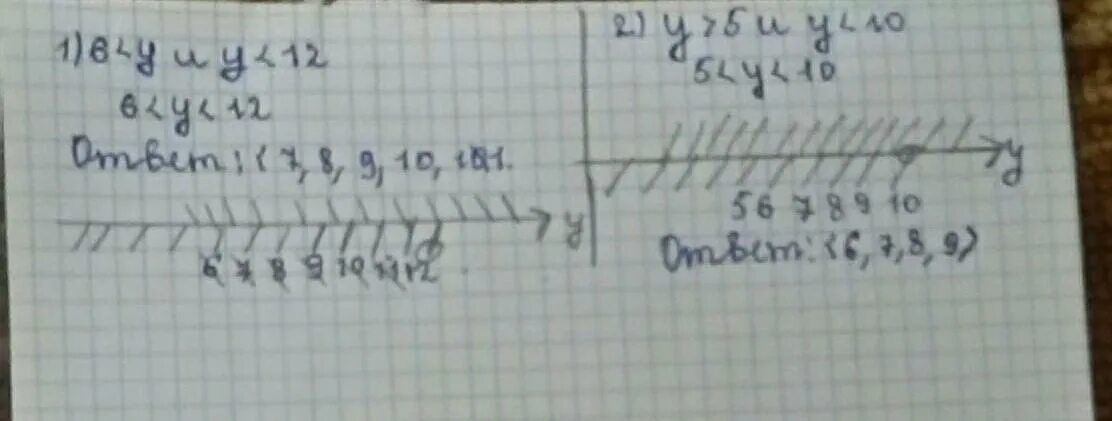 1) 6 < y и y < 12
6 < y < 12
Ответ: { 7, 8, 9, 10, 11.
6 7 8 9 10 11 12
y
2) y > 5 и y < 10
5 < y < 10
y
5 6 7 8 9 10
Ответ: {6, 7, 8, 9}